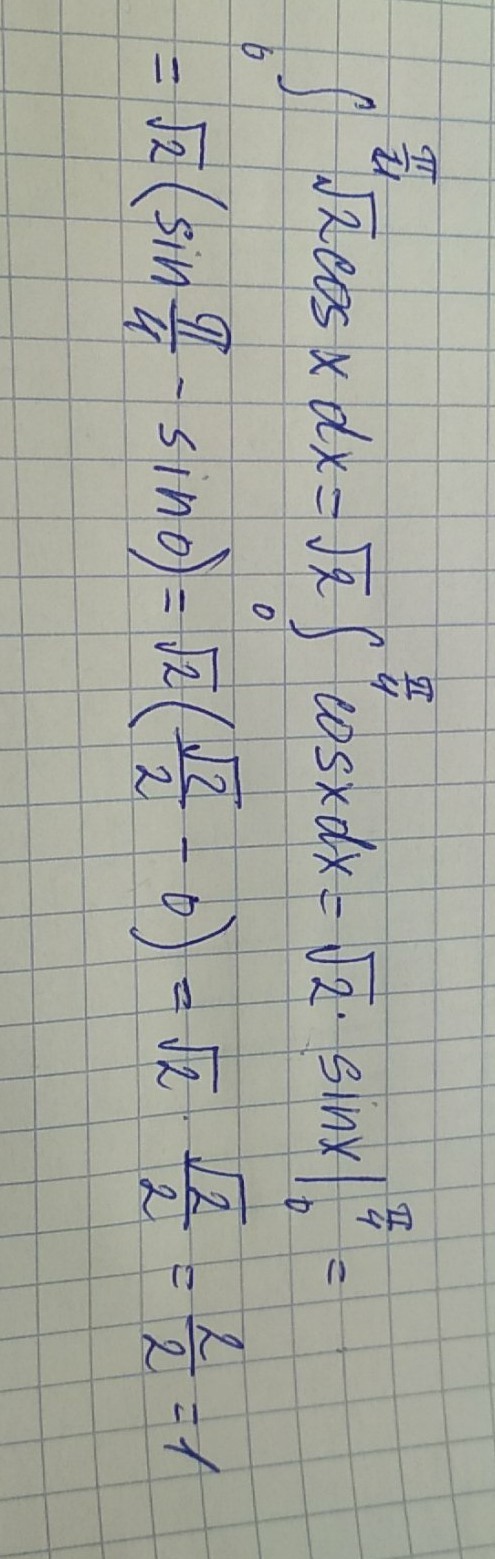 ∫₀^{π/4} √2 cos x dx = √2 ∫₀^{π/4} cos x dx = √2 · sin x |₀^{π/4} =
= √2 (sin π/4 - sin 0) = √2 (√2/2 - 0) = √2 · √2/2 = 2/2 = 1